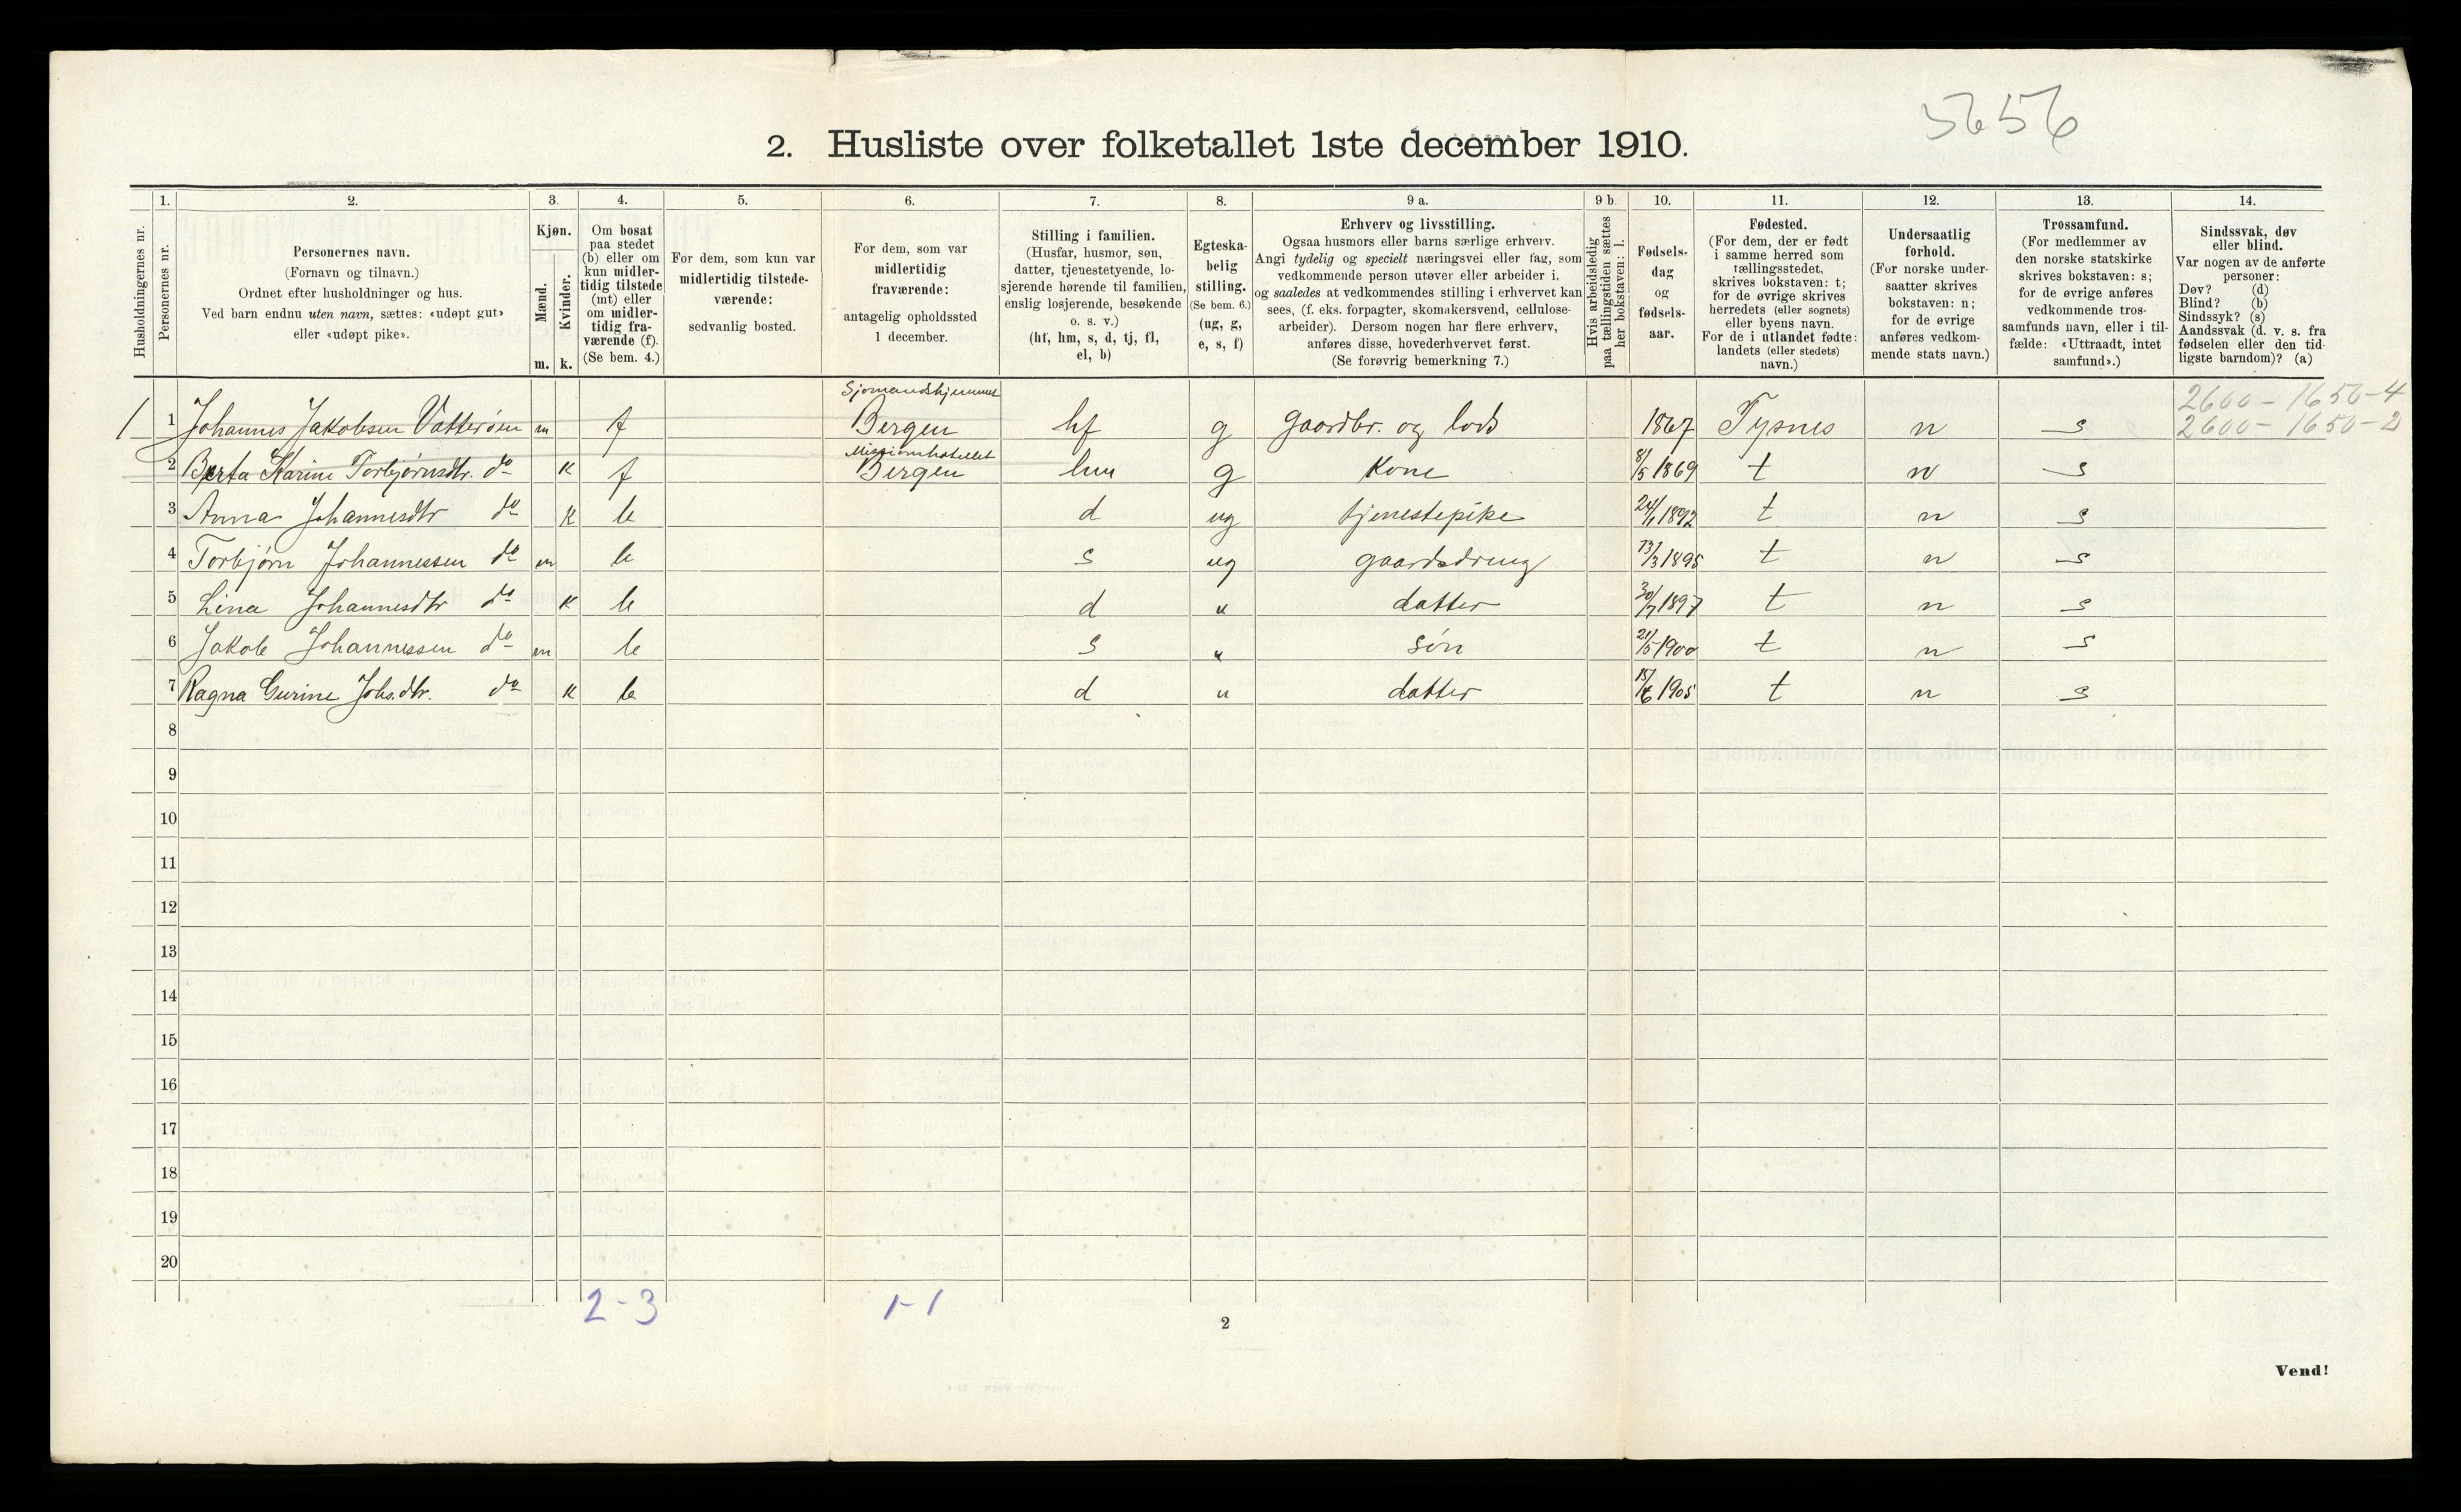 5656
2. Husliste over folketallet 1ste december 1910.
Husholdningernes nr.
1.
Personernes nr.
2.
Personernes navn.
(Fornavn og tilnavn.)
Ordnet efter husholdninger og hus.
Ved barn endnu uten navn, sættes: «udøpt gut»
eller «udøpt pike».
3.
Kjøn.
Mænd.
Kvinder.
m. k.
4.
Om bosat
paa stedet
(b) eller om
kun midler-
tidig tilstede
(mt) eller
om midler-
tidig fra-
værende (f).
(Se bem. 4.)
5.
For dem, som kun var
midlertidig tilstede-
værende:
sedvanlig bosted.
6.
For dem, som var
midlertidig
fraværende:
antagelig opholdssted
1 december.
7.
Stilling i familien.
(Husfar, husmor, søn,
datter, tjenestetyende, lo-
sjerende hørende til familien,
enslig losjerende, besøkende
o. s. v.)
(hf, hm, s, d, tj, fl,
el, b)
8.
Egteska-
belig
stilling.
(Se bem. 6.)
(ug, g,
e, s, f)
9 a.
Erhverv og livsstilling.
Ogsaa husmors eller barns særlige erhverv.
Angi tydelig og specielt næringsvei eller fag, som
vedkommende person utøver eller arbeider i,
og saaledes at vedkommendes stilling i erhvervet kan
sees, (f. eks. forpagter, skomakersvend, cellulose-
arbeider). Dersom nogen har flere erhverv,
anføres disse, hovederhvervet først.
(Se forøvrig bemerkning 7.)
9 b.
Hvis arbeidsledig
paa tællingstiden sættes
her bokstaven: l.
10.
Fødsels-
dag
og
fødsels-
aar.
11.
Fødested.
(For dem, der er født
i samme herred som
tællingsstedet,
skrives bokstaven: t;
for de øvrige skrives
herredets (eller sognets)
eller byens navn.
For de i utlandet fødte:
landets (eller stedets)
navn.)
12.
Undersaatlig
forhold.
(For norske under-
saatter skrives
bokstaven: n;
for de øvrige
anføres vedkom-
mende stats navn.)
13.
Trossamfund.
(For medlemmer av
den norske statskirke
skrives bokstaven: s;
for de øvrige anføres
vedkommende tros-
samfunds navn, eller i til-
fælde: «Uttraadt, intet
samfund».)
14.
Sindssvak, døv
eller blind.
Var nogen av de anførte
personer:
Døv? (d)
Blind? (b)
Sindssyk? (s)
Aandssvak (d. v. s. fra
fødselen eller den tid-
ligste barndom)? (a)
Sjomandshjemmet 2600 - 1650 - 4
1 1 Johannes Jakobsen Vatterøen m f Bergen hf g gaardbr. og lods 1867 Tysnes n s 2600 - 1650 - 2
Missionhotellet
2 Berta Karine Torbjørnsdtr. do k f Bergen hm g Kone 8/5 1869 t n s
3 Anna Johannesdtr do k b d ug tjenestepike 24/1 1892 t n s
4 Torbjørn Johannessen do m b s ug gaardsdreng 13/3 1895 t n s
5 Lina Johannesdtr do k b d u datter 30/7 1897 t n s
6 Jakob Johannessen do m b s u søn 21/5 1900 t n s
7 Ragna Gurine Johs.dtr. do k b d u datter 1905 t n s
8
9
10
11
12
13
14
15
16
17
18
19
20
2-3 1-1
2
Vend!